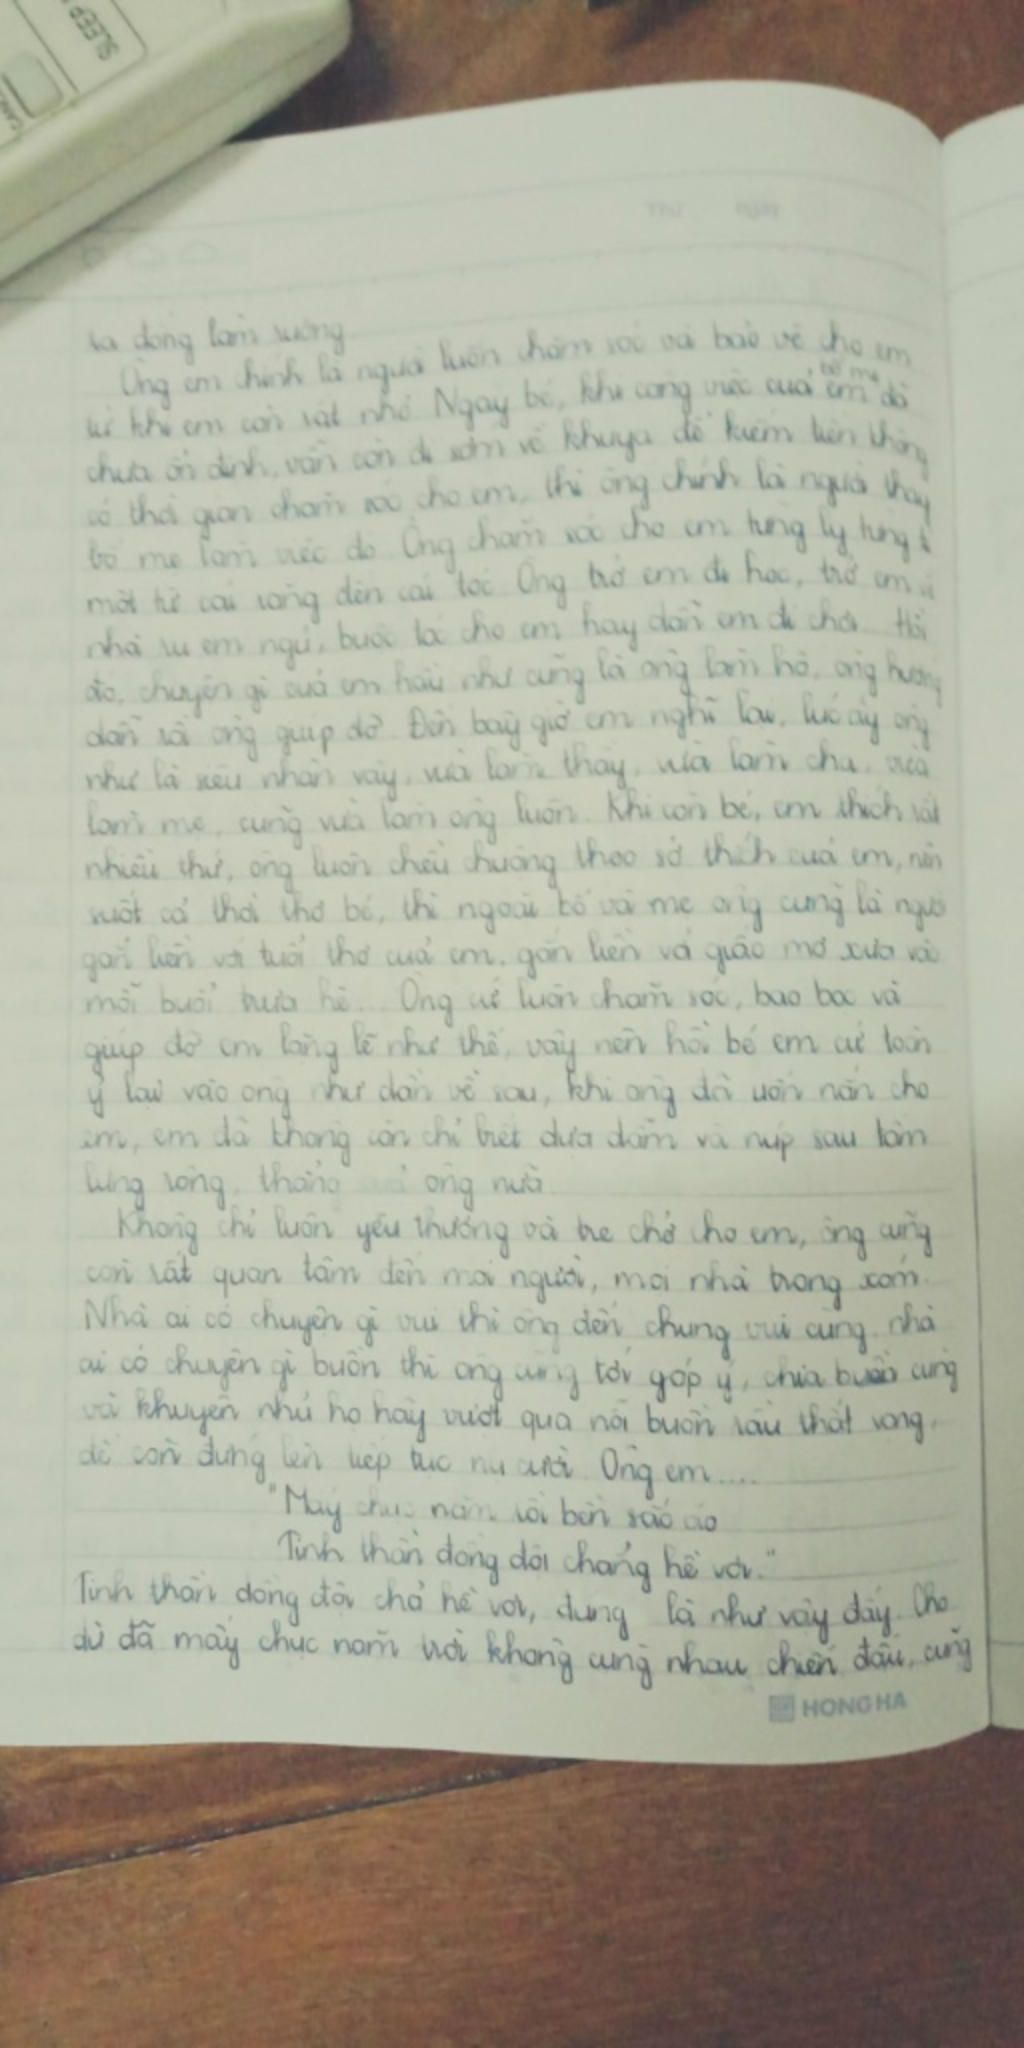 SLEEP
Thứ ngày
ra đồng làm ruộng
Ông em chính là người luôn chăm sóc và bảo vệ cho em
bố mẹ
từ khi em còn rất nhỏ. Ngày bé, khi công việc của em đó
chưa ổn định, vẫn còn đi sớm về khuya để kiếm tiền không
có thời gian chăm sóc cho em, thì ông chính là người thay
bố mẹ làm việc đó. Ông chăm sóc cho em từng ly từng tí
một từ cái răng đến cái tóc. Ông trở em đi học, trở em về
nhà ru em ngủ, buộc tóc cho em hay dẫn em đi chơi. Hồi
đó, chuyện gì của em hầu như cũng là ông làm hộ, ông hướng
dẫn rồi ông giúp đỡ. Đến bây giờ em nghĩ lại, lúc ấy ông
như là siêu nhân vậy, vừa làm thầy, vừa làm cha, vừa
làm mẹ, cũng vừa làm ông luôn. Khi còn bé, em thích rất
nhiều thứ, ông luôn chiều chuộng theo sở thích của em, nên
suốt cả thời thơ bé, thì ngoài bố và mẹ ông cũng là người
gắn liền với tuổi thơ của em, gắn liền và giấc mơ xưa và
mỗi buổi trưa hè... Ông cứ luôn chăm sóc, bao bọc và
giúp đỡ em lặng lẽ như thế, vậy nên hồi bé em cứ toàn
ỷ lại vào ông như dần về sau, khi ông đã uốn nắn cho
em, em đã không còn chỉ biết dựa dẫm và núp sau tấm
lưng rộng, thẳng của ông nữa
Không chỉ luôn yêu thương và che chở cho em, ông cũng
còn rất quan tâm đến mọi người, mọi nhà trong xóm.
Nhà ai có chuyện gì vui thì ông đến chung vui cùng, nhà
ai có chuyện gì buồn thì ông cũng tới góp ý, chia buồn cùng
và khuyên nhủ họ hãy vượt qua nỗi buồn rầu thất vọng,
để còn đứng lên tiếp tục nụ cười. Ông em....
"Mấy chục năm rồi bền sắc áo
Tinh thần đồng đội chẳng hề vơi."
Tinh thần đồng đội chả hề vơi, đúng là như vậy đấy. Cho
dù đã mấy chục năm trời không cùng nhau chiến đấu, cũng
HONG HA